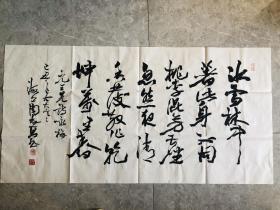 冰雪林中
著此身不同
桃李混芳塵
忽然一夜清
香發散作乾
坤萬里春
元王冕詩咏梅